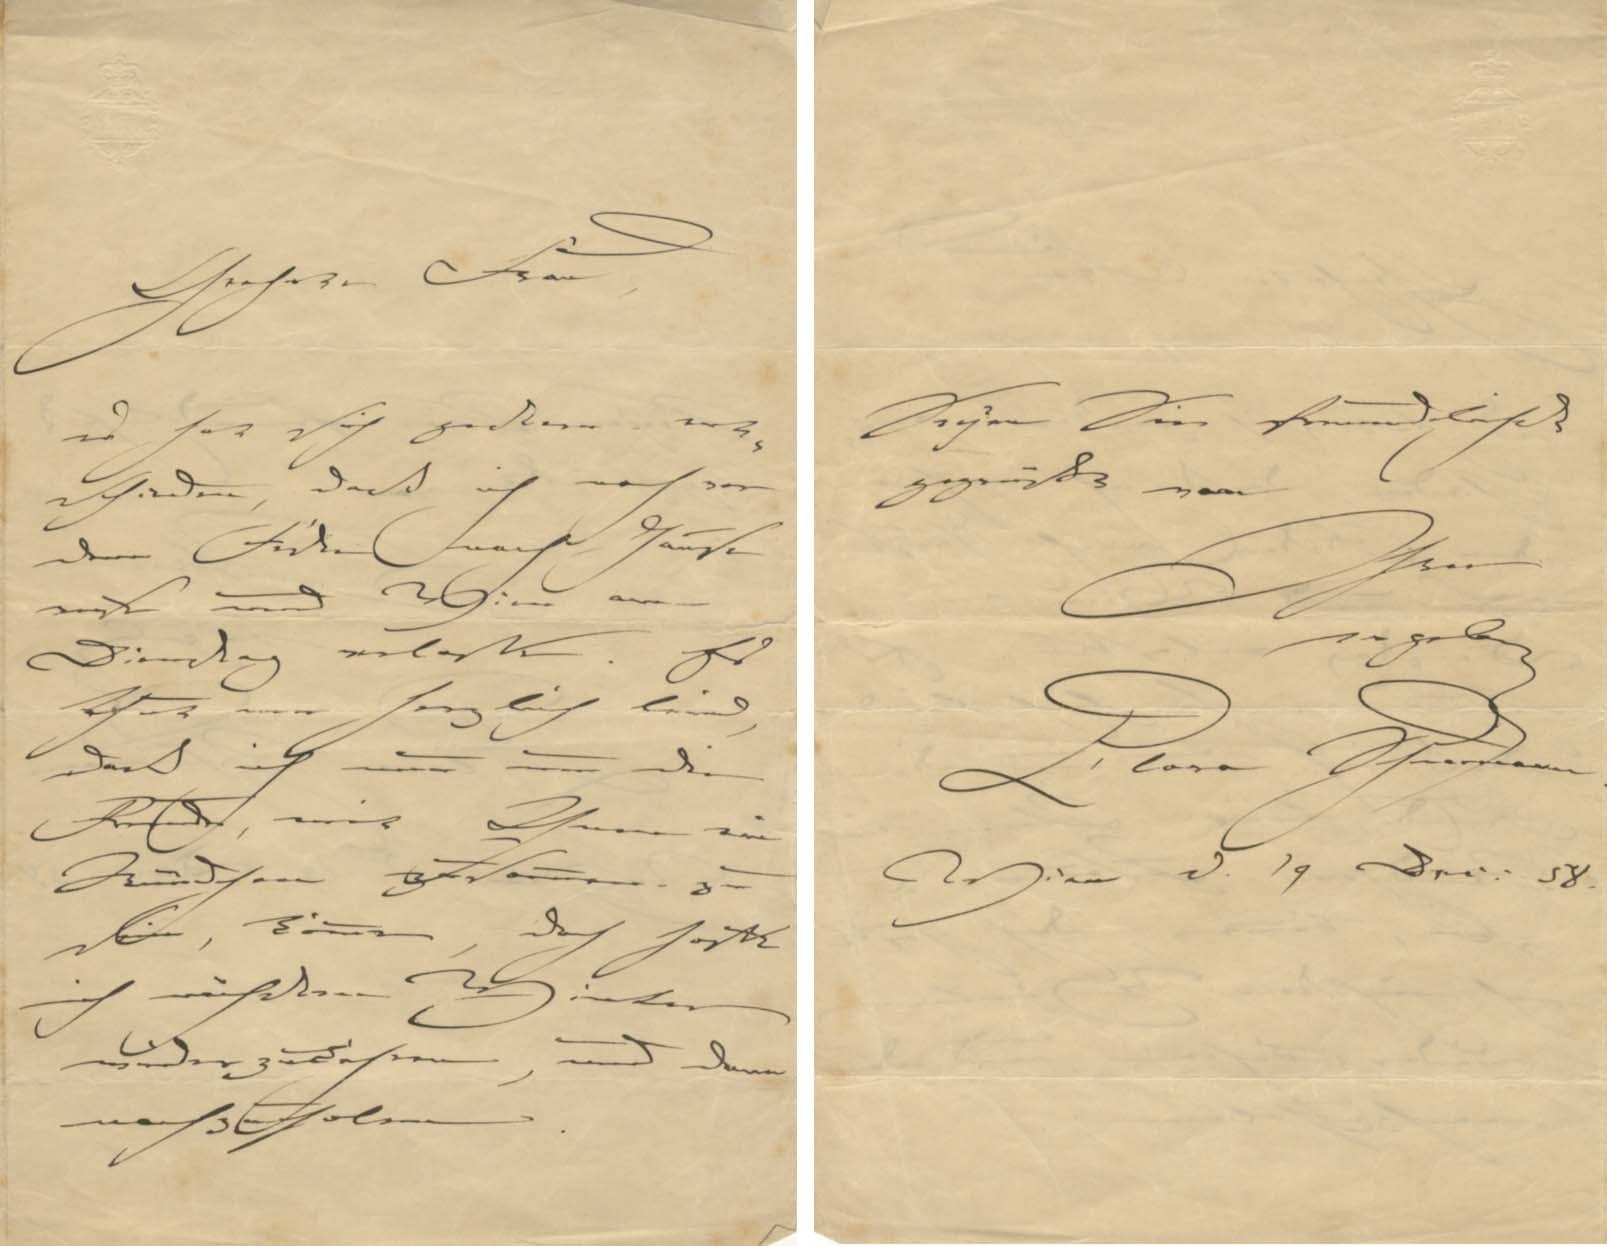 Verehrte Frau,
es hat sich gestern ent-
schieden, dass ich noch vor
dem Feste nach Hause
reise und Wien am
Dienstag verlasse. Es
thut mir herzlich leid,
dass ich nun um die
Freude, mit Ihnen ein
Stündchen zusammen zu
sein, komme, doch hoffe
ich nächsten Winter
wiederzukehren, und dann
nachzuholen.
Seyen Sie freundlichst
gegrüßt von
Ihrer
ergebenen
Clara Schumann.
Wien d. 19 Dec: 58.